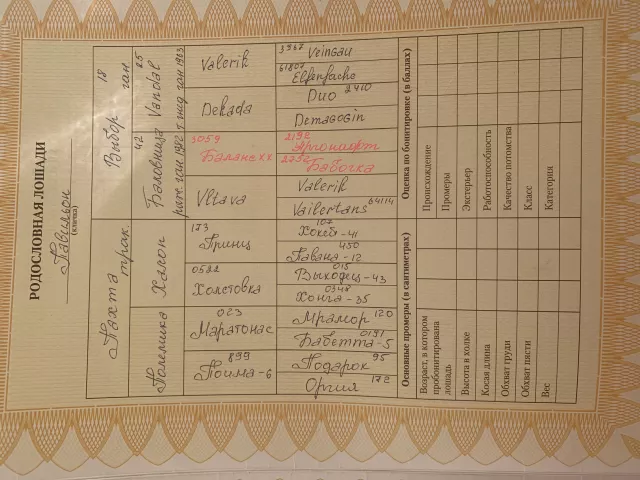 РОДОСЛОВНАЯ ЛОШАДИ
Павильон
(кличка)
Пахта
трак.
Выбор 18
ган
Полемика
Халон
Баловница 42
рыж. ган 1982
Vandal 25
т.гнед ган 1983
Пойма-6 899
Маратонас 023
Холстовка 0522
Принц 173
Vltava
Баланс xx 3059
Dekada
Valerik
Оргия 172
Подарок 95
Бабетта-5 0191
Мрамор 120
Хонга-35 0348
Выходец-43 015
Павана-12 450
Хокей-41 107
Vailertans 64114
Valerik
Бабочка
Аргонавт 2192
Demagogin
Duo 2410
Elfenfache 61807
Veingau 3967
Основные промеры (в сантиметрах)
Оценка по бонитировке (в баллах)
Возраст, в котором
пробонитирована
лошадь
Высота в холке
Косая длина
Обхват груди
Обхват пясти
Вес
Происхождение
Промеры
Экстерьер
Работоспособность
Качество потомства
Класс
Категория